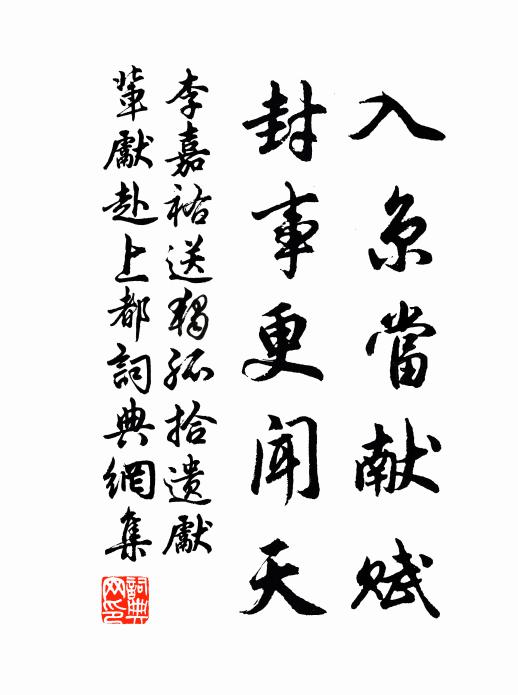 入京當献賦
封事更聞天
李嘉祐送獨孤拾遺獻
輩獻赴上都詞典網集
詞典
网印